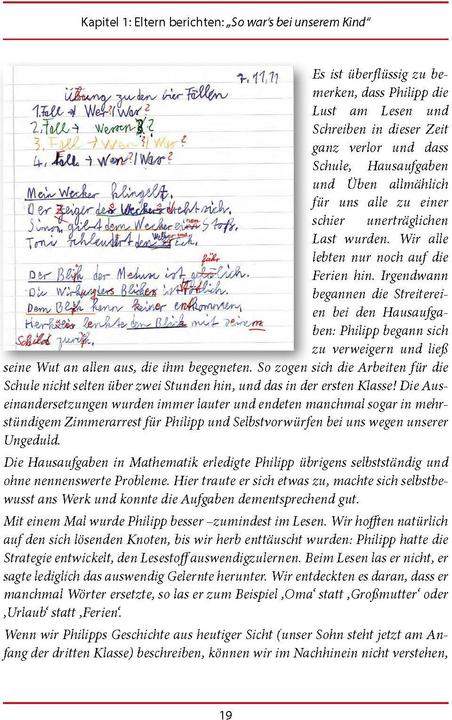 Kapitel 1: Eltern berichten: „So war's bei unserem Kind“
7.11.11
Übung zu den vier Fällen
1. Fall → Wer?/Was?
2. Fall → Wessen?
3. Fall → Wem?/Was?
4. Fall → Wen?/Was?
Mein Wecker klingelt.
Der Zeiger des Weckers dreht sich.
Simon gibt dem Wecker einen Stoß.
Toni schleudert den zurück.
Der Blick der Medusa ist
Die Wirkung ihres Blickes ist tödlich.
Dem Blick kann keiner entkommen.
Herkules lenkte den Blick mit seinem
Schild zurück.
Es ist überflüssig zu be-
merken, dass Philipp die
Lust am Lesen und
Schreiben in dieser Zeit
ganz verlor und dass
Schule, Hausaufgaben
und Üben allmählich
für uns alle zu einer
schier unerträglichen
Last wurden. Wir alle
lebten nur noch auf die
Ferien hin. Irgendwann
begannen die Streiterei-
en bei den Hausaufga-
ben: Philipp begann sich
zu verweigern und ließ
seine Wut an allen aus, die ihm begegneten. So zogen sich die Arbeiten für die
Schule nicht selten über zwei Stunden hin, und das in der ersten Klasse! Die Aus-
einandersetzungen wurden immer lauter und endeten manchmal sogar in mehr-
stündigem Zimmerarrest für Philipp und Selbstvorwürfen bei uns wegen unserer
Ungeduld.
Die Hausaufgaben in Mathematik erledigte Philipp übrigens selbstständig und
ohne nennenswerte Probleme. Hier traute er sich etwas zu, machte sich selbstbe-
wusst ans Werk und konnte die Aufgaben dementsprechend gut.
Mit einem Mal wurde Philipp besser –zumindest im Lesen. Wir hofften natürlich
auf den sich lösenden Knoten, bis wir herb enttäuscht wurden: Philipp hatte die
Strategie entwickelt, den Lesestoff auswendigzulernen. Beim Lesen las er nicht, er
sagte lediglich das auswendig Gelernte herunter. Wir entdeckten es daran, dass er
manchmal Wörter ersetzte, so las er zum Beispiel ‚Oma‘ statt ‚Großmutter‘ oder
‚Urlaub‘ statt ‚Ferien‘.
Wenn wir Philipps Geschichte aus heutiger Sicht (unser Sohn steht jetzt am An-
fang der dritten Klasse) beschreiben, können wir im Nachhinein nicht verstehen,
19